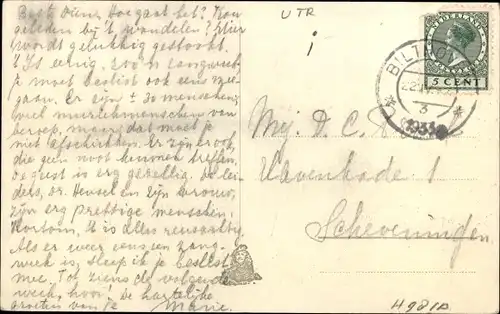 Beste Duins, Hoe gaat het?
geleden bij 't wandelen? Hier
wordt gelukkig gestookt.
't Is eenig, zoo'n zangweek
je moet beslist ook eens mee
gaan. Er zijn ± 30 menschen,
veel muziekmenschen van
beroep, maar dat moet je
niet afschrikken. Er zijn er ook,
die geen noot kunnen treffen.
De geest is erg gezellig. De lei-
ders, Dr. Hensel en zijn vrouw,
zijn erg prettige menschen.
Kortom, 't is alles reusachtig.
Als er weer eens een zang-
week is, sleep ik je beslist
mee. Tot ziens de volgende
week, hoor! De hartelijke
groeten van je Marie.
UTR
i
NEDERLAND
5 CENT
BILTHOVEN
3
1933
Mej. D. C.
Havenkade 1
Scheveningen
H981A